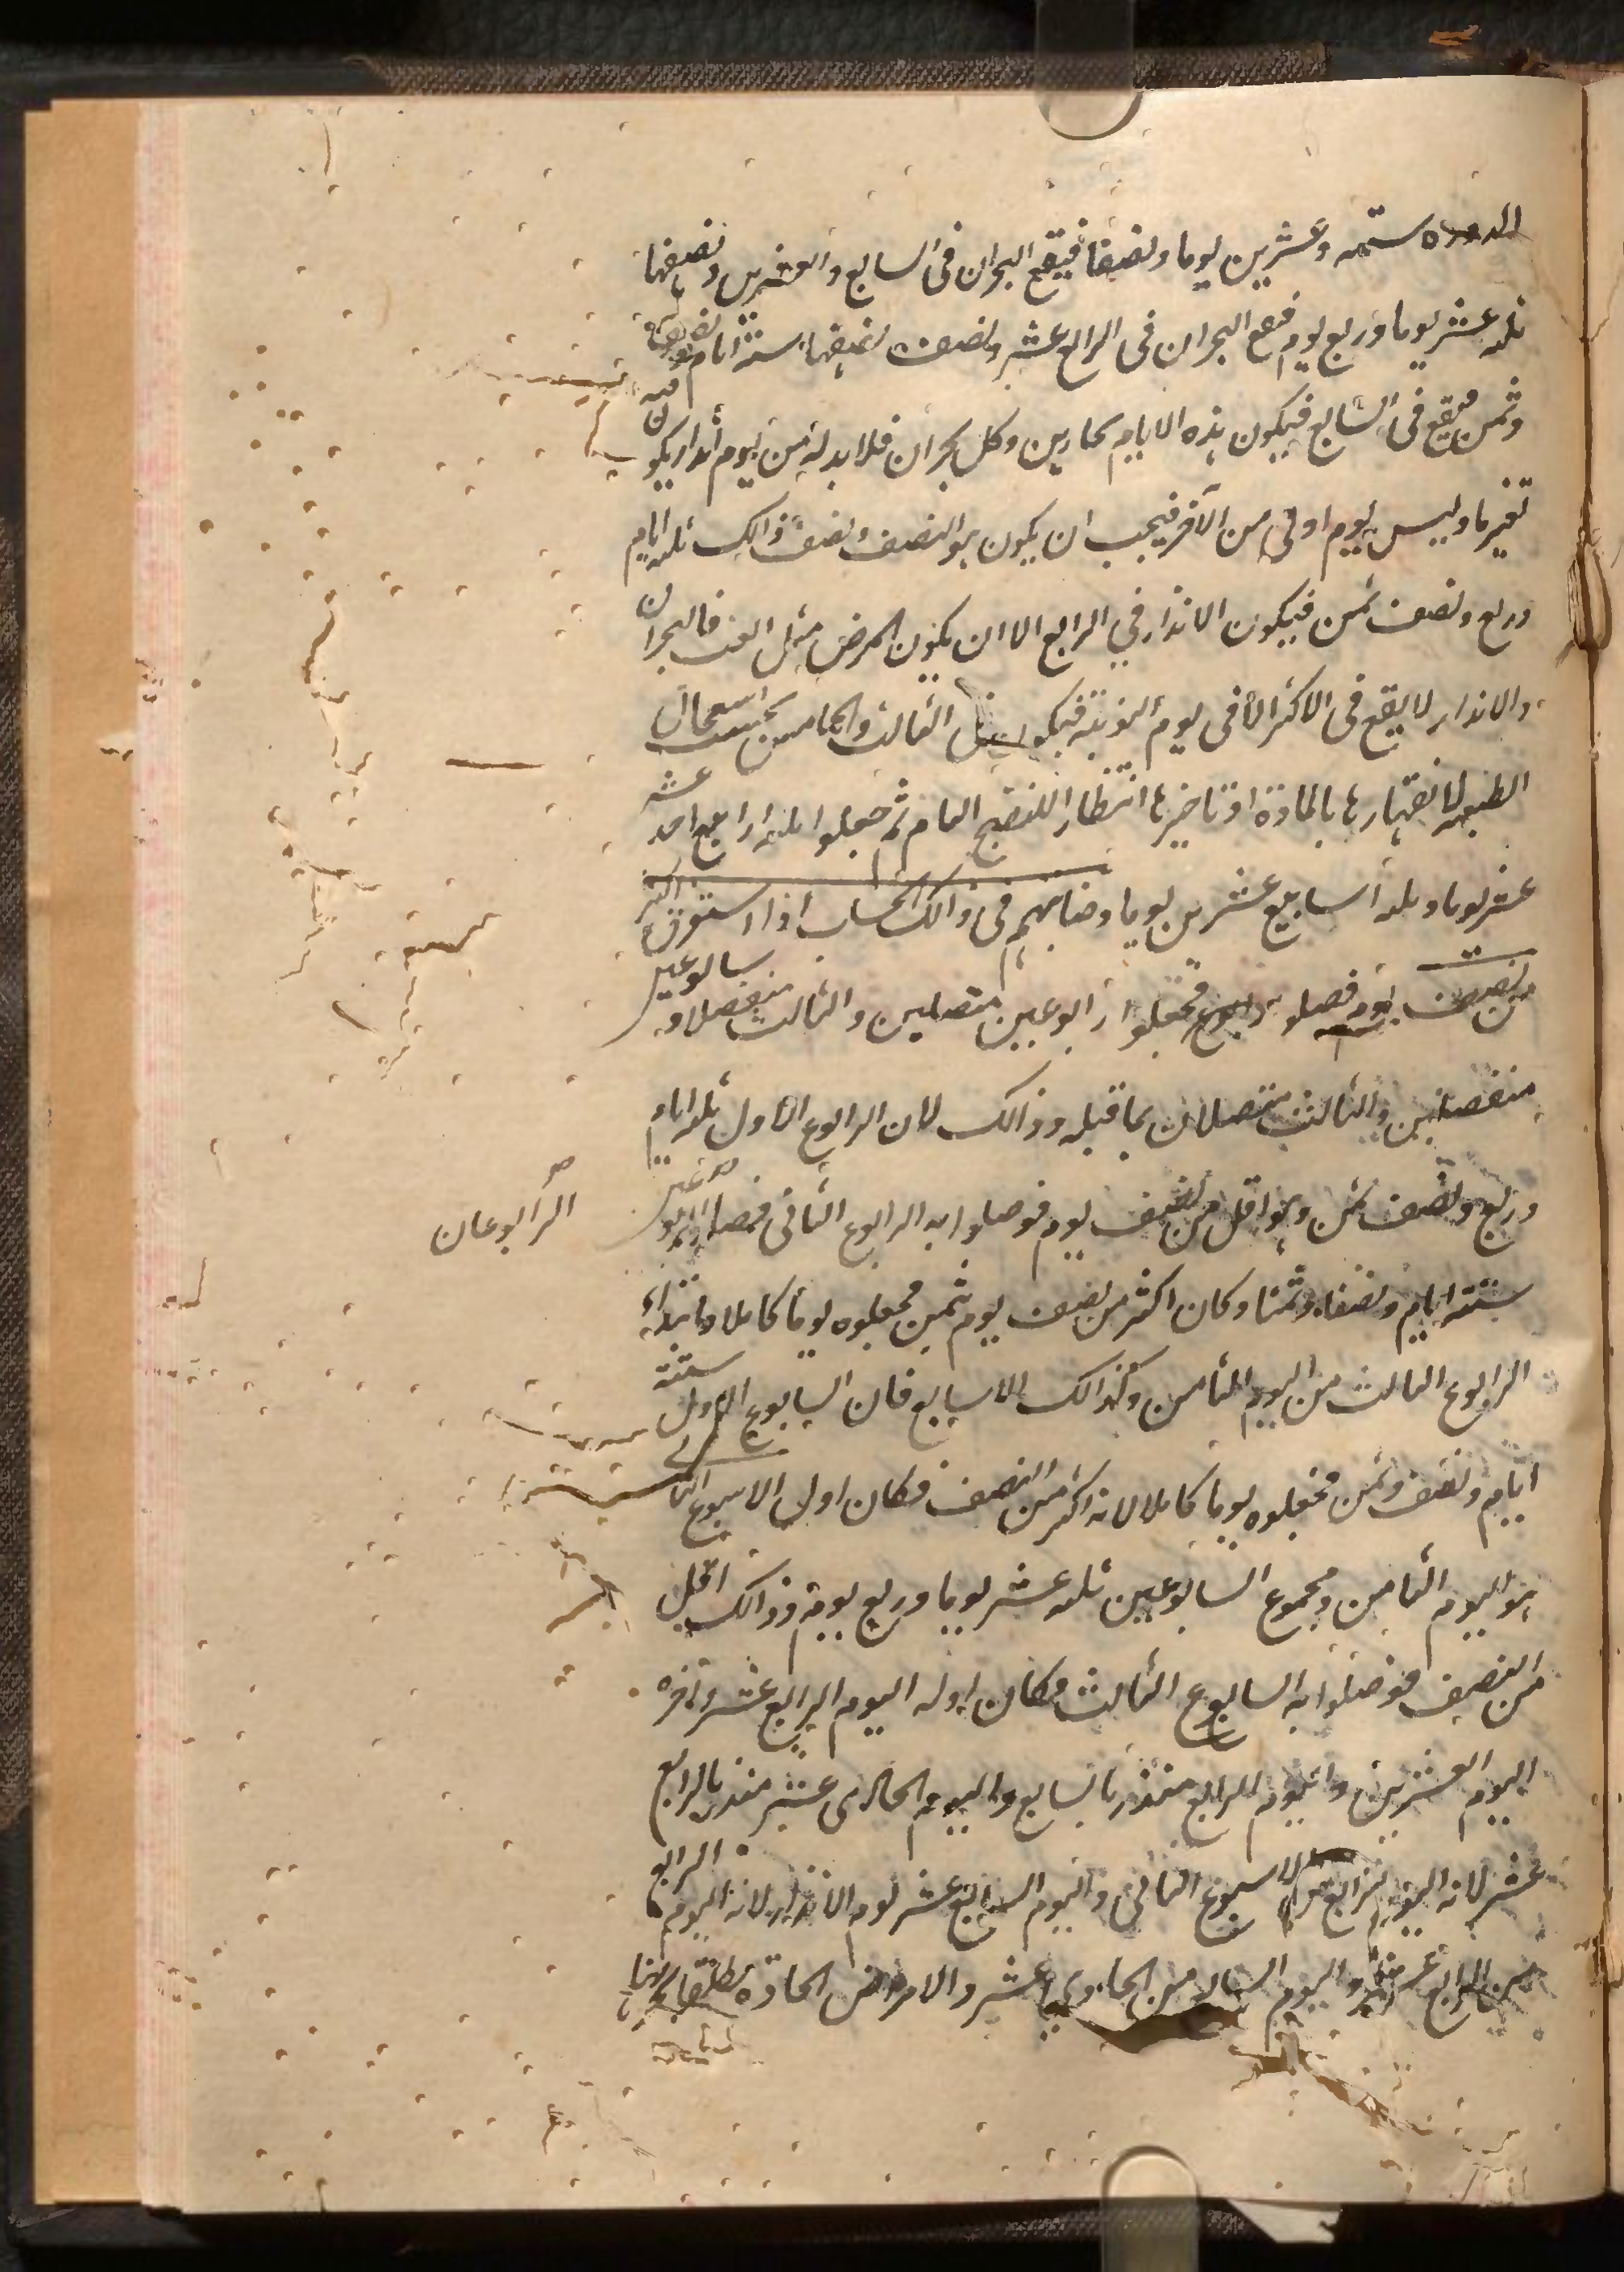 المدورة ستة وعشرين يوما ونصفا فيقع البحران فى السابع والعشرين ونصفها
ثلثة عشر يوما وربع يوم فيقع البحران فى الرابع عشر ونصف نصفها ستة ايام ونصف
وثمن فيقع فى السابع فيكون هذه الايام بحارين وكل بحران فلا بد له من يوم انذار يكون فيه
تغير ما وليس يوم اولى من الآخر فيجب ان يكون هو النصف ونصف ذالك ثلثة ايام
وربع ونصف ثمن فيكون الانذار في الرابع الا ان يكون المرض مثل الغب فالبحران
والانذار لا يقع فى الاكثر الا فى يوم النوبة فيكون مثل الثالث والخامس بحسب استعجال
الطبيعة لانقهارها بالمادة او تاخيرها انتظارا للنضج التام ثم جعلوا ثلثة ارابيع احد عشر
عشر يوما وثلثة اسابيع عشرين يوما وضابطهم فى ذالك الحساب اذا استغرق اكثر
من نصف يوم فصلوا فجعلوا رابوعين متصلين والثالث منفصلا وسابوعين
منفصلين والثالث متصلان بما قبله وذالك لان الرابوع الاول ثلثة ايام
وربع ونصف ثمن وهو اقل من نصف يوم فوصلوا به الرابوع الثانى فصار الرابوعين
الرابوعان
ستة ايام ونصفا وثمنا وكان اكثر من نصف يوم بثمن فجعلوه يوما كاملا وابتداء
الرابوع الثالث من اليوم الثامن وكذالك الاسابيع فان السابوع الاول ستة
ايام ونصف وثمن فجعلوه يوما كاملا لانه اكثر من النصف فكان اول الاسبوع الثانى
هو اليوم الثامن ومجموع السابوعين ثلثة عشر يوما وربع يوم وذالك اقل
من النصف فوصلوا به السابوع الثالث فكان اوله اليوم الرابع عشر وآخره
اليوم العشرين واليوم الرابع منذر بالسابع واليوم الحادى عشر منذر بالرابع
عشر لانه اليوم الرابع من الاسبوع الثانى واليوم السابع عشر يوم الانذار لانه اليوم الرابع
من الرابع عشر واليوم السابع من الحادى عشر والامراض الحادة مطلقا بحرانها